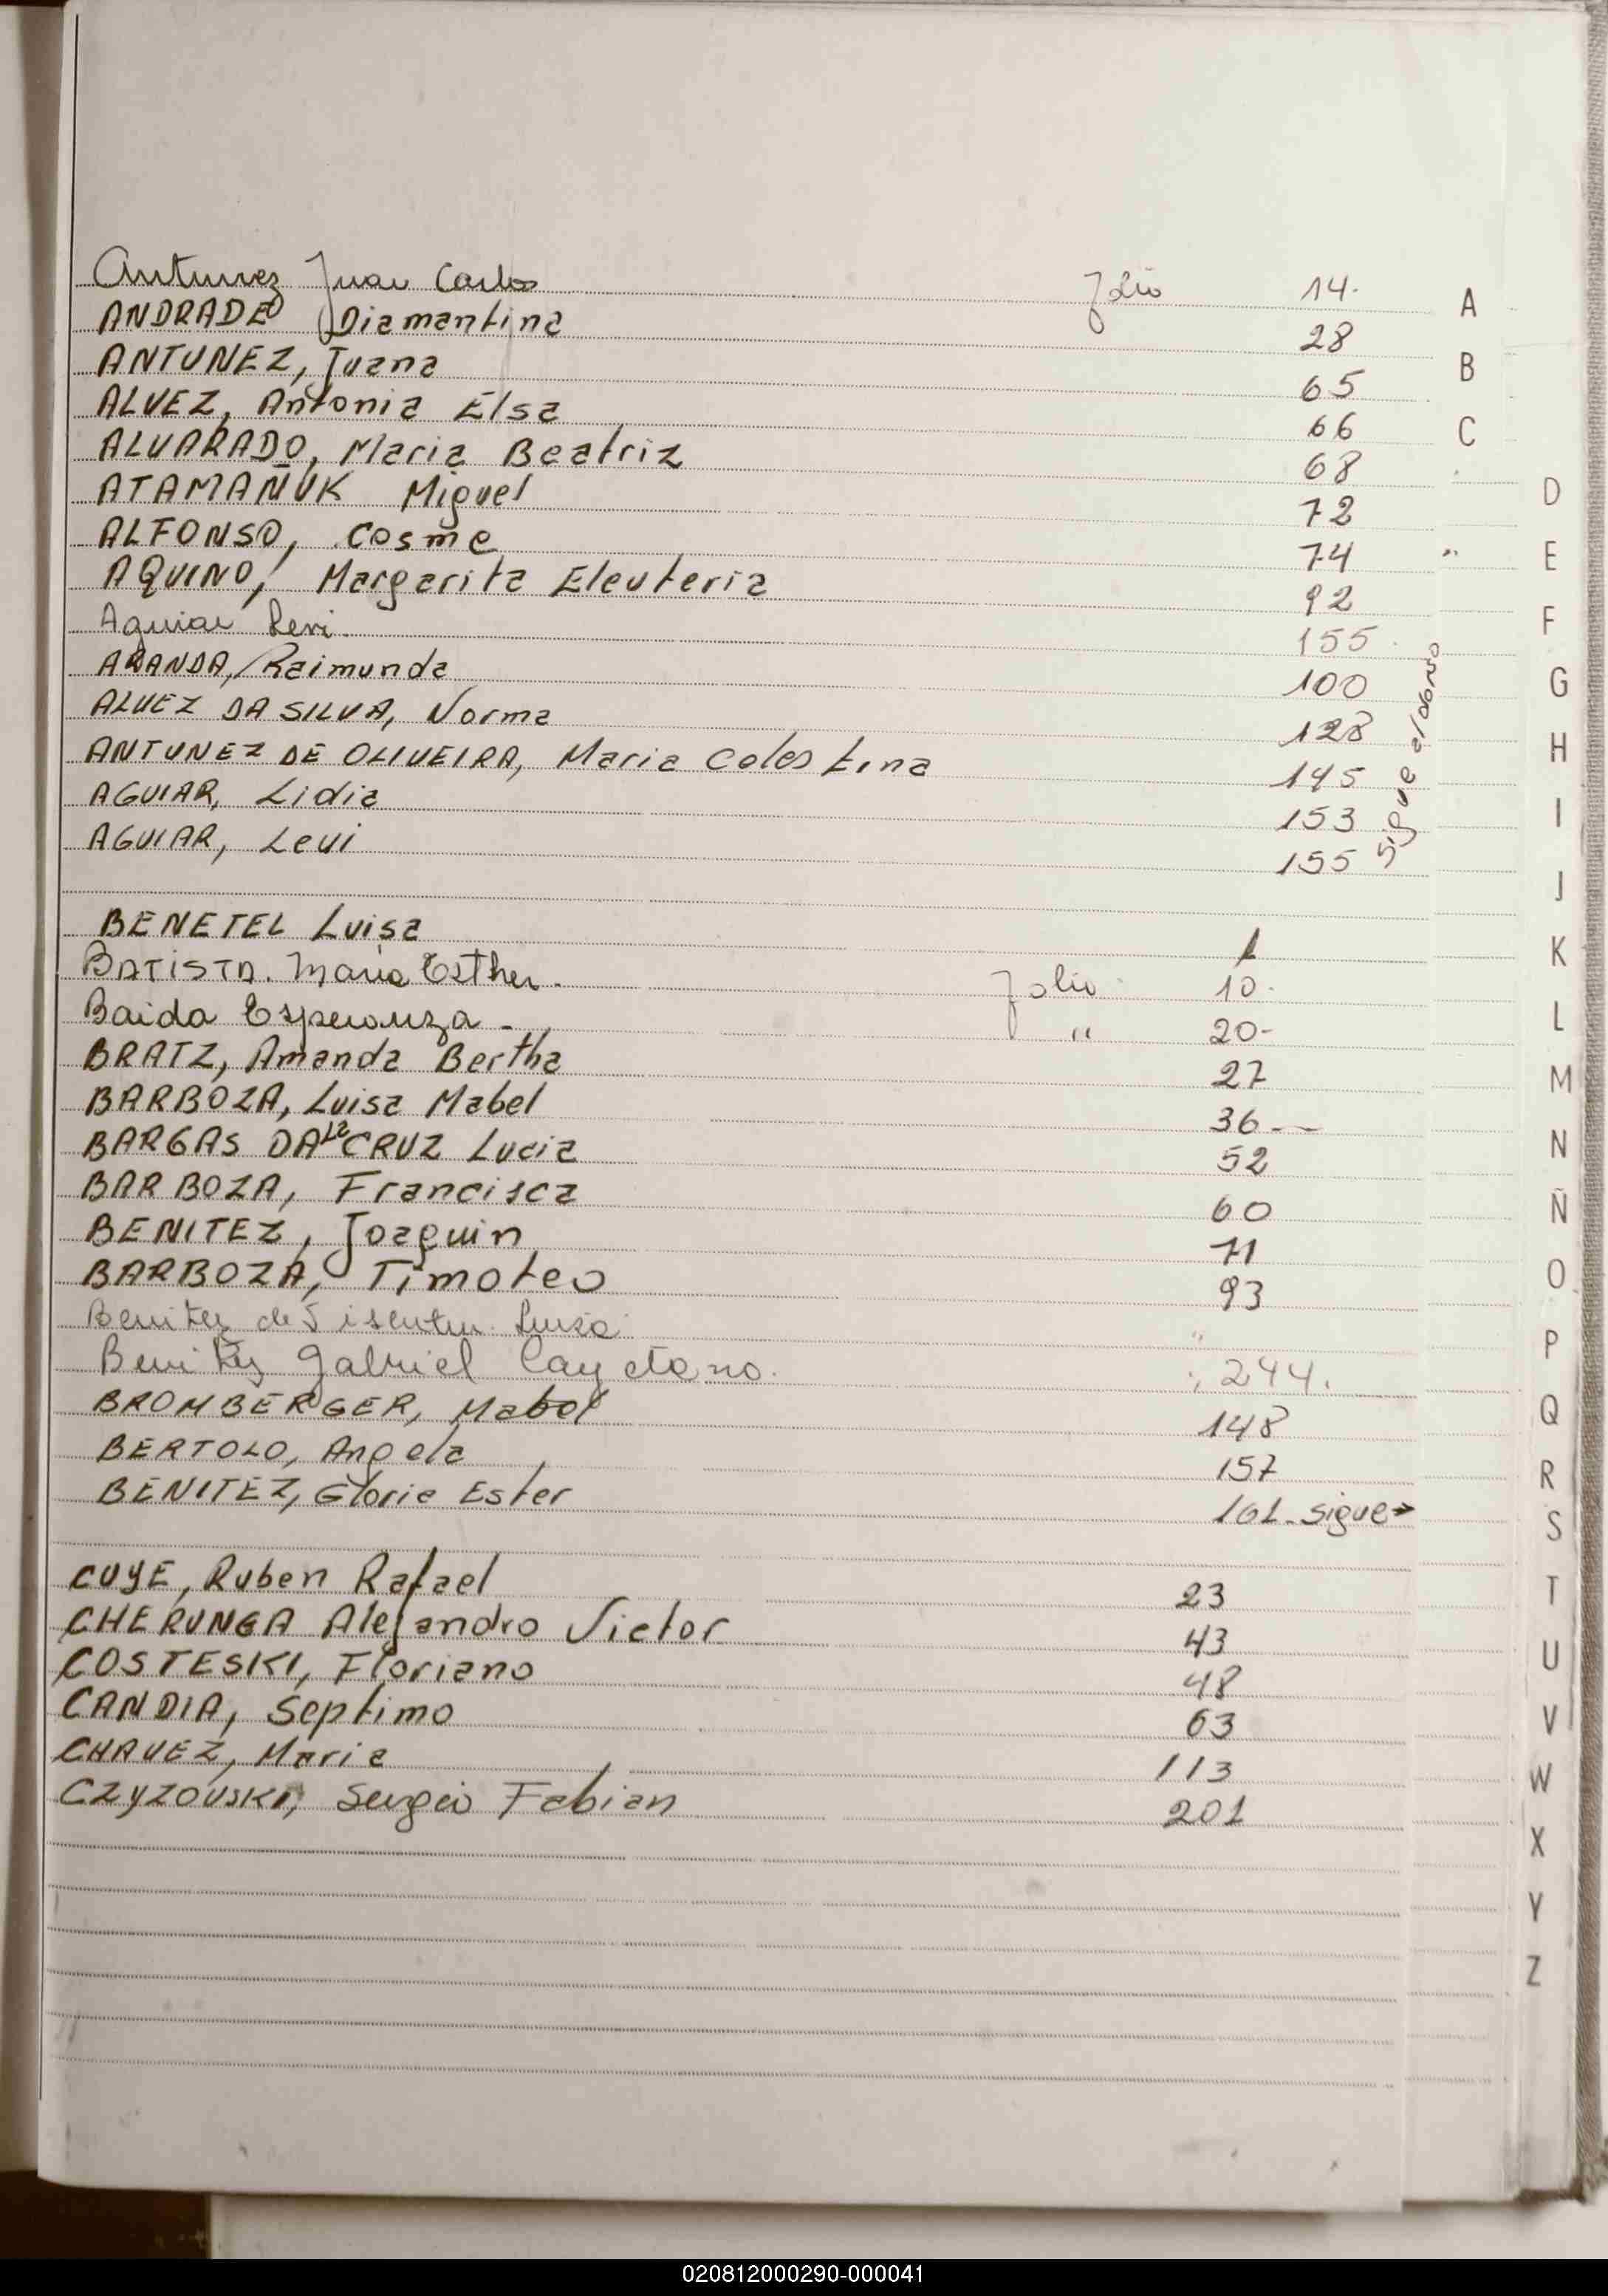 Antunez Juan Carlos folio 14.
ANDRADE Diamantina 28
ANTUNEZ, Juana 65
ALVEZ, Antonia Elsa 66
ALVARADO, Maria Beatriz 68
ATAMAÑUK Miguel 72
ALFONSO, Cosme 74
AQUINO, Margarita Eleuteria 92
Aguiar Levi. 155
ARANDA, Raimunda 100
ALVEZ DA SILVA, Norma 128
ANTUNEZ DE OLIVEIRA, Maria Celestina 145
AGUIAR, Lidia 153
AGUIAR, Levi 155
Sigue al dorso
BENETEL Luisa 1
BATISTA. Maria Esther. folio 10.
Baida Esperanza - " 20-
BRATZ, Amanda Bertha 27
BARBOZA, Luisa Mabel 36
BARGAS DA la CRUZ Lucia 52
BARBOZA, Francisca 60
BENITEZ, Joaquin 71
BARBOZA, Timoteo 93
Benitez de Luisa "
Benitez Gabriel Cayetano. 244.
BROMBERGER, Mabel 148
BERTOLO, Angela 157
BENITEZ, Gloria Ester 161-sigue→
CUYE, Ruben Rafael 23
CHERUNGA Alejandro Victor 43
COSTESKI, Floriano 48
CANDIA, Septimo 63
CHAVEZ, Maria 113
CZYZOUSKI, Sergio Fabian 201
A
B
C
D
E
F
G
H
I
J
K
L
M
N
Ñ
O
P
Q
R
S
T
U
V
W
X
Y
Z
020812000290-000041